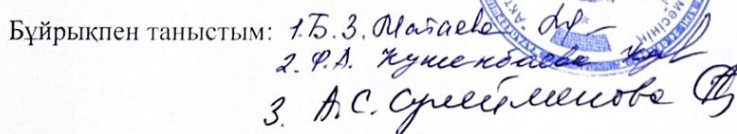 Бұйрықпен таныстым: 1. Б. З. Матаева
2. Ф. А. Кушенбаева
3. А. С. Сулейменова